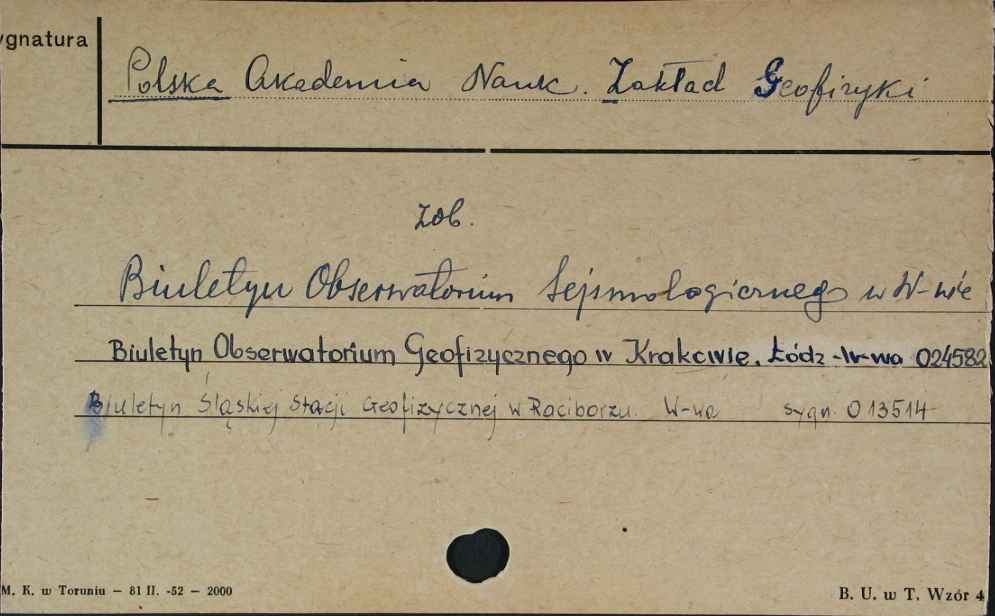 ygnatura
Polska Akademia Nauk. Zakład Geofizyki
zob.
Biuletyn Obserwatorium Sejsmologicznego w W-wie
Biuletyn Obserwatorium Geofizycznego w Krakowie. Łódź -W-wa 024582
Biuletyn Śląskiej Stacji Geofizycznej w Raciborzu. W-wa sygn. 013514
M. K. w Toruniu — 81 II. -52 — 2000
B. U. w T. Wzór 4